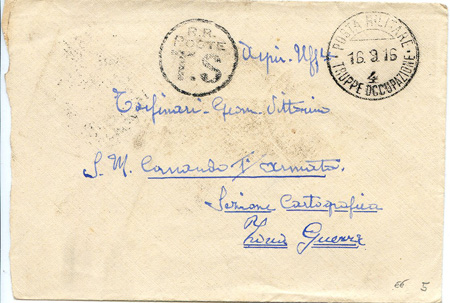 R.R.
POSTE
.S
POSTA MILITARE
16.9.16
4
TRUPPE OCCUPAZIONE
Aspir. Uff
Geom. Vittorino
S. M. Comando 1ª Armata
Sezione Cartografica
Zona Guerra
5